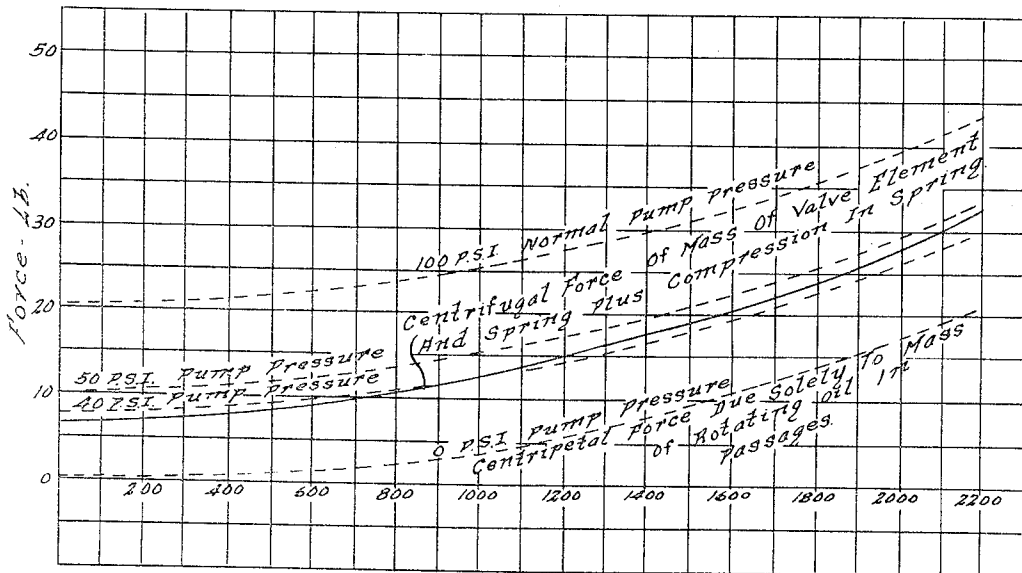 50
40
30
20
10
0
Force-Lb.
100 P.S.I. Normal Pump Pressure
Centrifugal Force Of Mass Of Valve Element
And Spring Plus Compression In Spring.
50 P.S.I. Pump Pressure
40 P.S.I. Pump Pressure
0 P.S.I Pump Pressure
Centripetal Force Due Solely To Mass
of Rotating Oil In
Passages.
200 400 600 800 1000 1200 1400 1600 1800 2000 2200